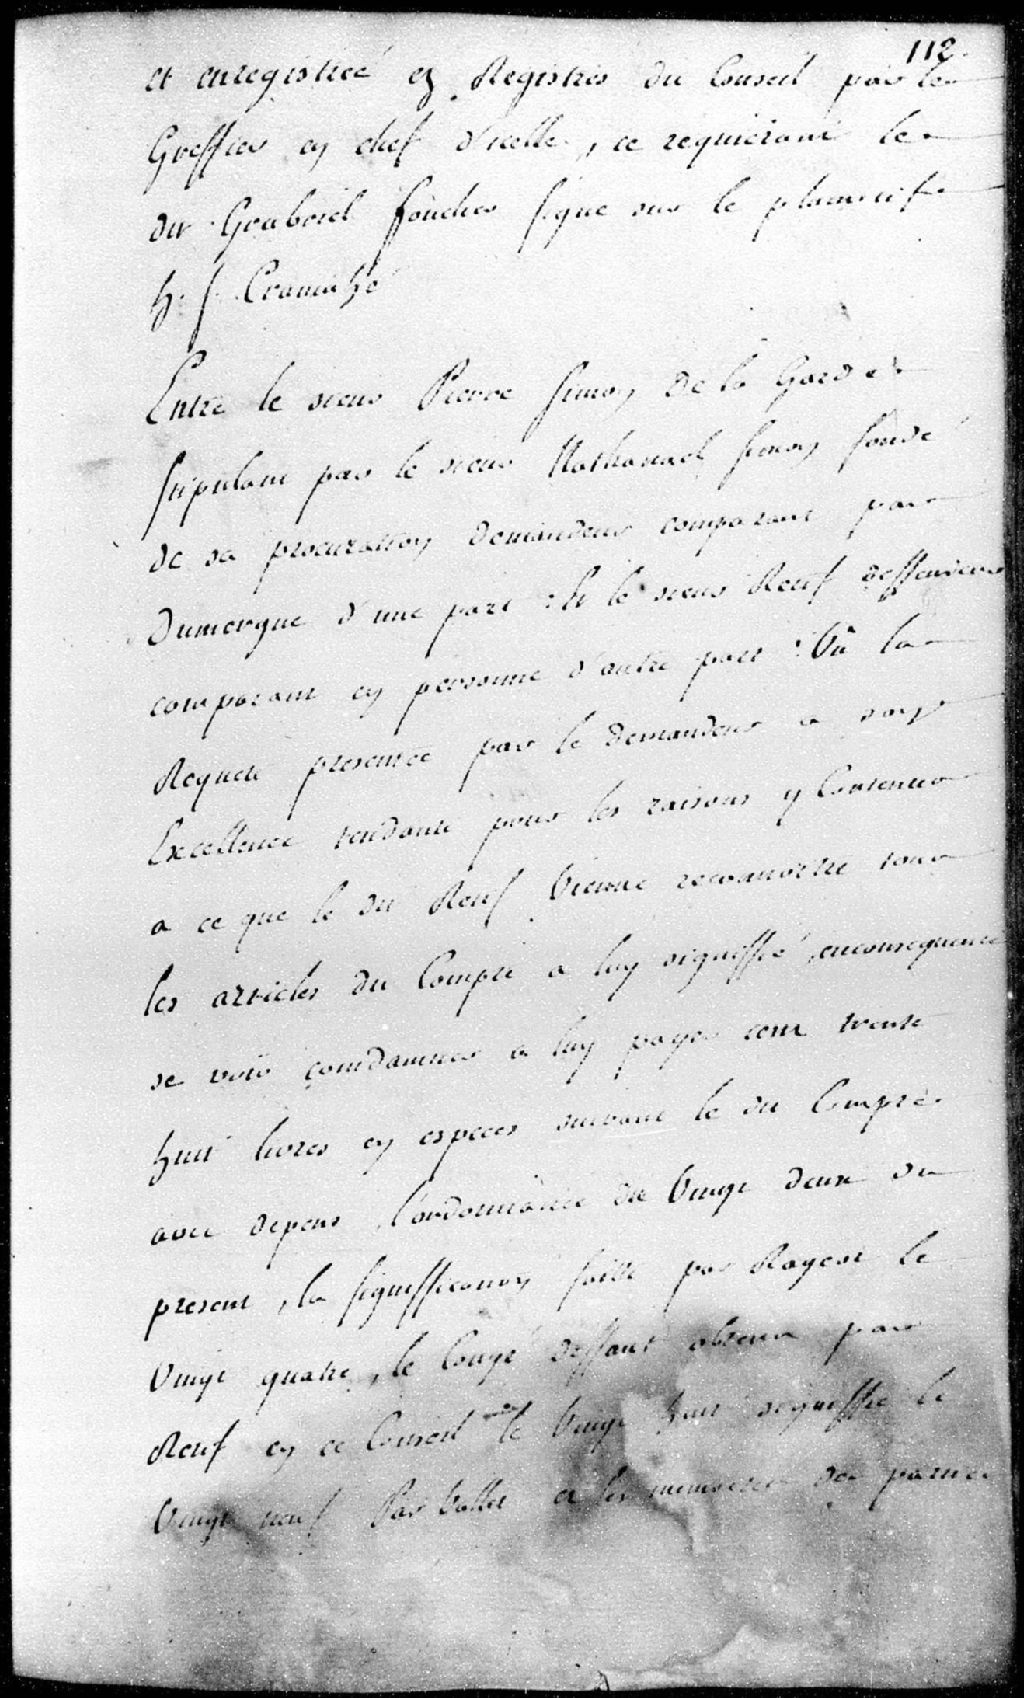 112.
et enregistreé ez Registres du Conseil par le
Greffier en chef d'icelle, ce requierant le
dit Gouboiel foucher signe sur le plumitif
h. f. Cramahé
Entre le sieur Pierre Simon de la Garde
stipulant par le sieur Nathanael Simon fondé
de sa procuration demandeur comparant par
Dumergue d'une part: Et le sieur Reuf deffendeur
comparant en personne d'autre part: Vû la
Requete presentée par le Demandeur a son
Excellence tendante pour les raisons y Contenues
a ce que le dit Reuf Vienne reconnoitre tous
les articles du Compte a luy signiffié, enconsequence
se voir comdamner a luy payer cent trente
huit livres en especes suivant le dit Compte
avec depens, l'ordonnance du Vingt deux du
present, la signiffication faitte par Rageot le
Vingt quatre, le Congé deffaut obtenu par
Reuf en ce Conseil le Vingt huit signiffié le
Vingt neuf Par Vallet et les memoires des parties